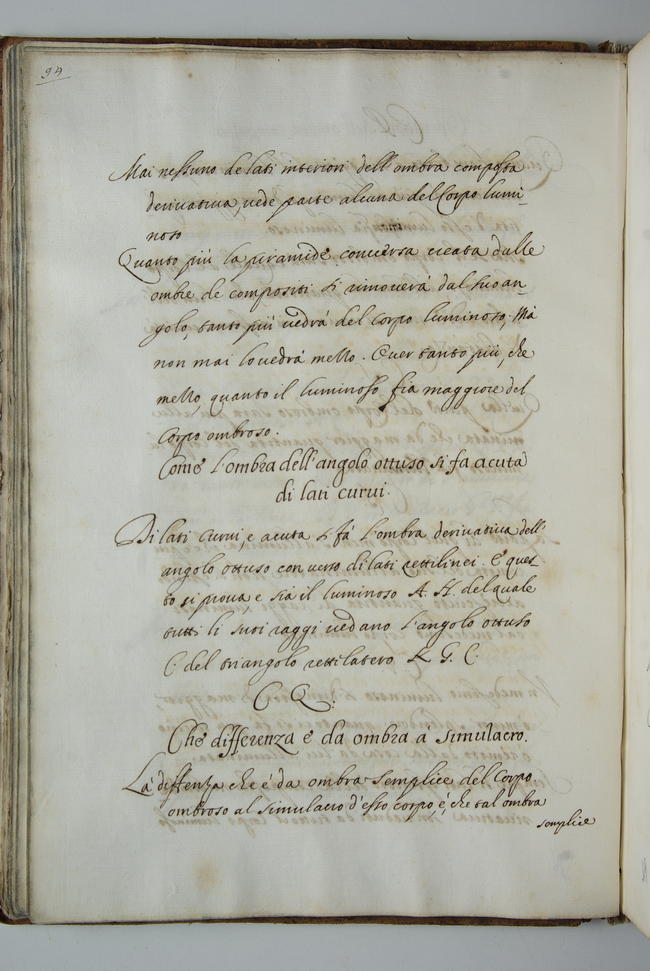 94
Mai nessuno de lati interiori dell'ombra composta
derivativa, vede parte alcuna del Corpo lumi-
noso
Quanto più la piramide conversa creata dalle
ombre de compositi si rimoverà dal suo an-
golo, tanto più vedrà del Corpo luminoso, Mà
non mai lo vedrà mezzo. E ver tanto più, che
mezzo quanto il luminoso fia maggiore del
Corpo ombroso.
Come l'ombra dell'angolo ottuso si fa acuta
di lati curui.
Di lati curui, e acuta si fà l'ombra derivativa dell'
angolo ottuso con verso di lati rettilinei. E ques-
to si prova, e sia il luminoso A. H. del quale
tutti li suoi raggi vedano l'angolo ottuso
C. del triangolo rettilatero G. C.
C Q.
Che differenza è da ombra à simulacro.
La differenza che é da ombra semplice del Corpo
ombroso al simulacro d'esso corpo, é, che tal ombra
semplice